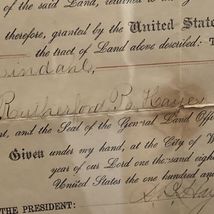 of the said Land, returned to the
therefore, granted by the United State
the tract of Land above described: T
Rutherford B. Hayes
nt, and the Seal of the General Land Offi
Given under my hand, at the City of W
year of our Lord one thousand eigh
United States the one hundred an
THE PRESIDENT: